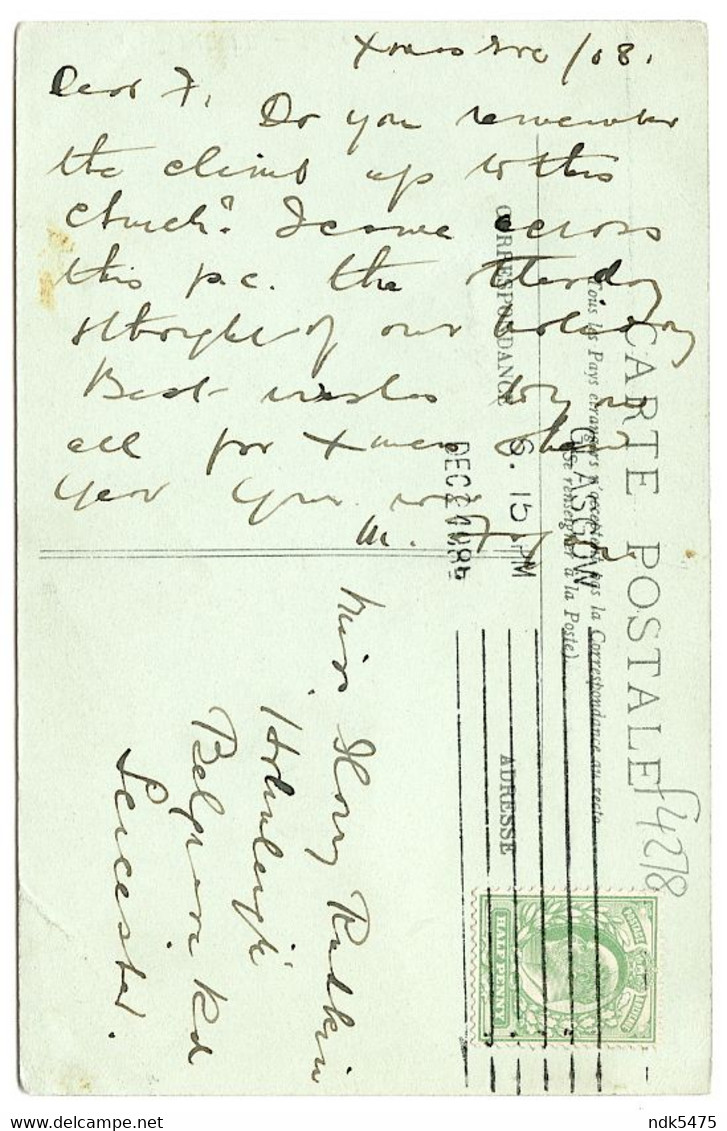 Xmas Eve /08.
Dear F. Do you remember
the climb up to this
church? I came across
this p.c. the other day
& thought of our holiday
Best wishes to you
all for Xmas & New
Year Yours
M.
CARTE POSTALE
Tous les Pays étrangers n'acceptent pas la Correspondance au recto
(Se renseigner à la Poste).
CORRESPONDANCE
ADRESSE
GLASGOW
6.15 PM
DEC 24
HALF PENNY
Miss Flory Rudkin
Belgrave Rd
Leicester.
£4218
ndk5475